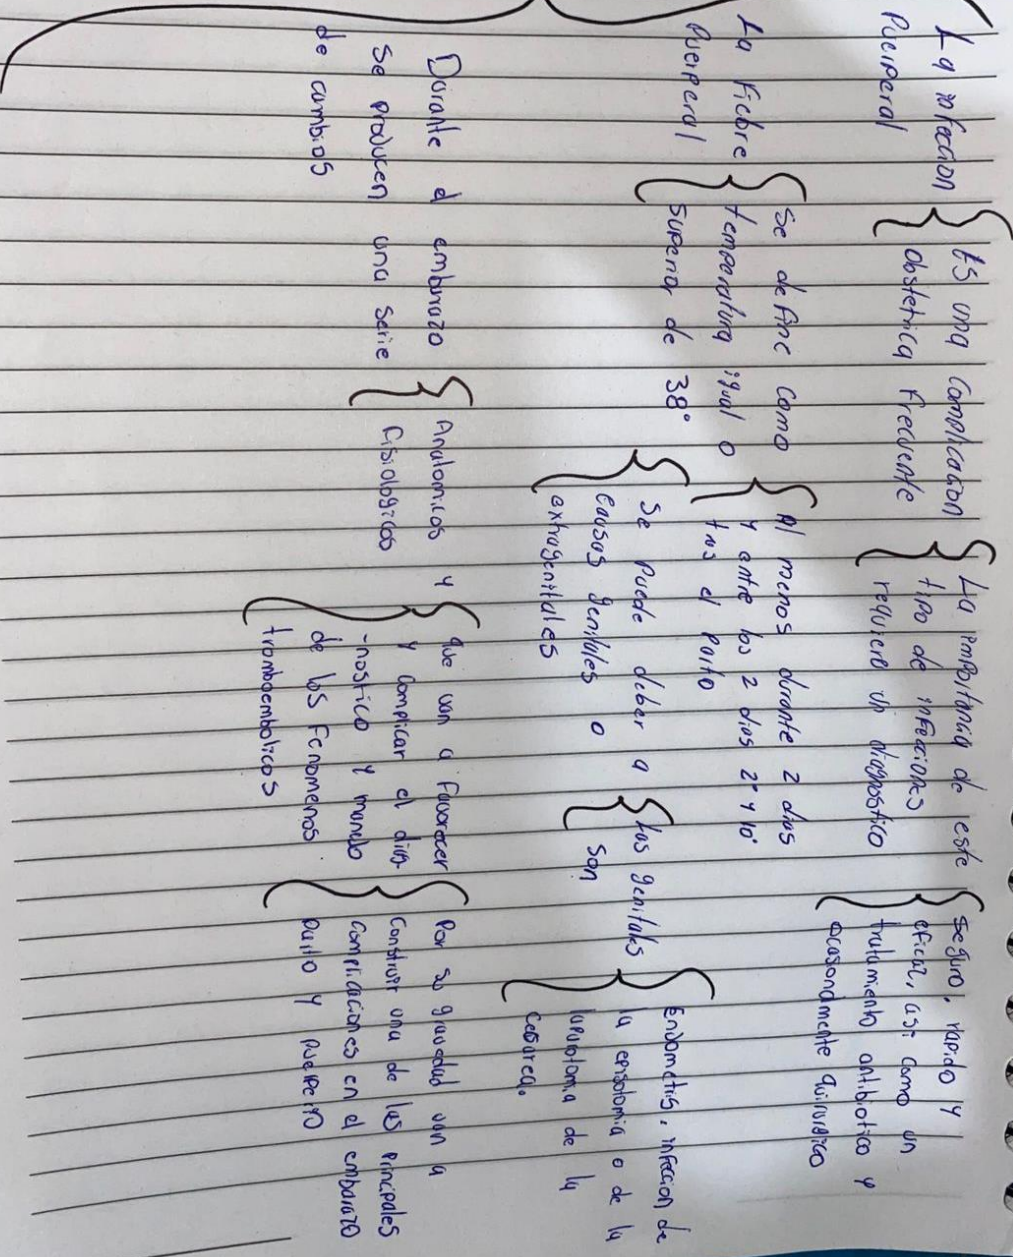 La infeccion
Puerperal
Es una complicacion
obstetrica frecuente
La importancia de este
tipo de infecciones
requiere un diagnostico
seguro, rapido y
eficaz, asi como un
tratamiento antibiotico y
ocasionalmente quirurgico
La fiebre
Puerperal
Se define como
temperatura igual o
superior de 38°
Al menos durante 2 dias
Y entre los 2 dias 2° y 10°
tras el parto
Se puede deber a
causas genitales o
extragenitales
Las genitales
son
Endometris, infeccion de
la episotomia o de la
laparotomia de la
cesarea.
Durante el embarazo
se producen una serie
de cambios
Anatomicos y
fisiologicos
que van a favorecer
y complicar el diag-
-nostico y manejo
de los fenomenos
tromboembolicos
Por su gravedad van a
construir una de las principales
complicaciones en el embarazo
parto y puerperio